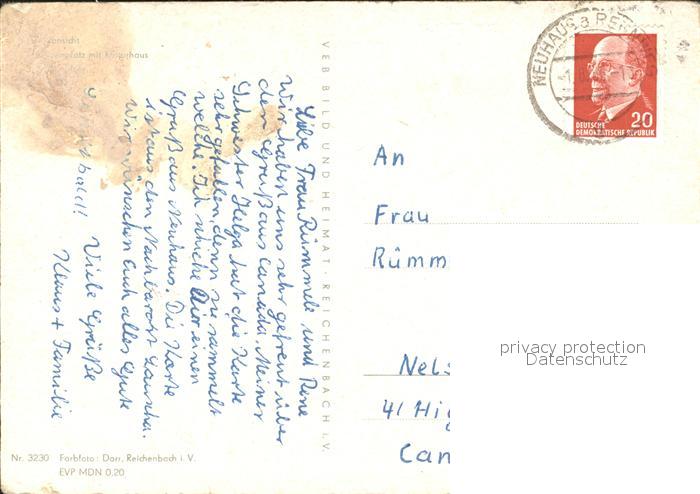 ansicht
platz mit Kulturhaus
Liebe Frau Rümmele und Rene
Wir haben uns sehr gefreut über
den Gruß aus Canada. Meiner
Schwester Helga hat die Karte
sehr gefallen, denn sie sammelt
welche. Ich schicke Dir einen
Gruß aus Neuhaus. Die Karte
ist aus dem Nachbarort Lauscha.
Wir wünschen Euch alles Gute
bald! Viele Grüße
Klaus + Familie
VEB BILD UND HEIMAT · REICHENBACH i. V.
Nr. 3230 Farbfoto: Darr, Reichenbach i. V.
EVP MDN 0,20
NEUHAUS a RENNWEG
20
DEUTSCHE
DEMOKRATISCHE REPUBLIK
An
Frau
Rümm
Nels
41 Hig
Can
privacy protection
Datenschutz